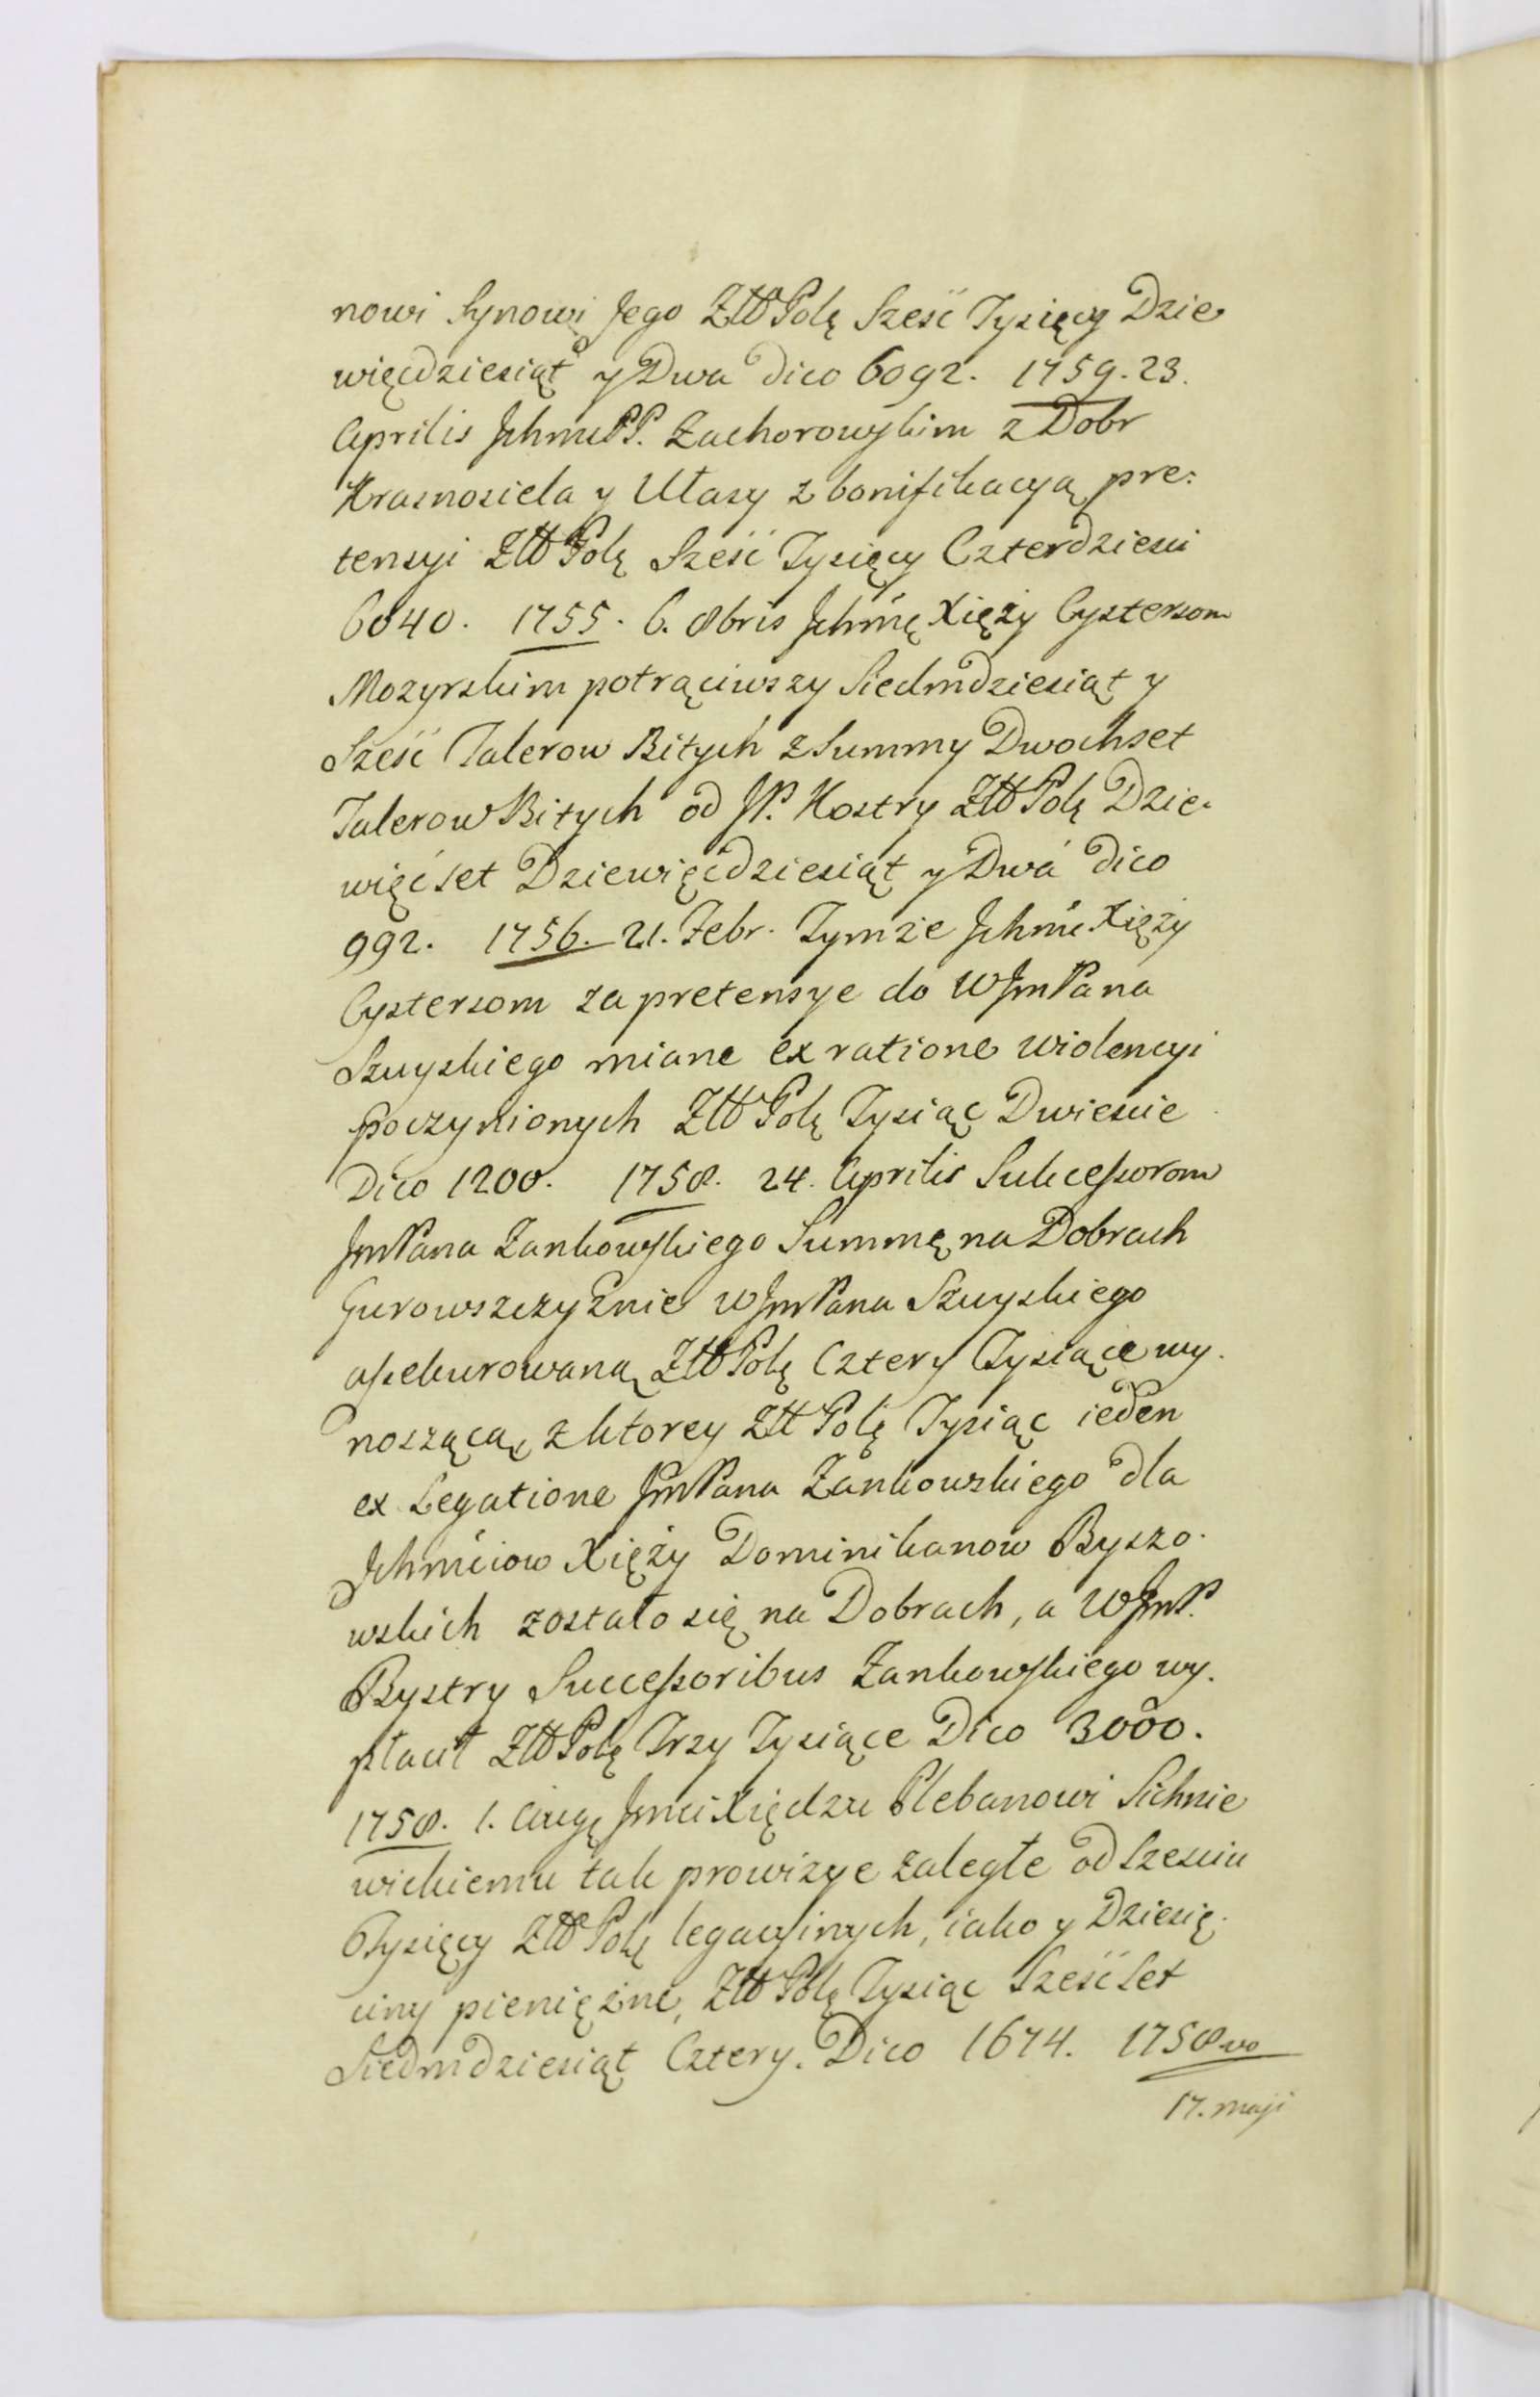 nowi Synowi Jego Złł Polę Sześć Tysięcy Dzie
więcdziesiąt y Dwa dico 6092. 1759. 23.
Aprilis Jchmć PP. Zachorowskim z Dobr
Krasnosiela y Utasy z bonifikacyą pre:
tensyi Złł Polę Sześć Tysięcy Czterdzieści
6040. 1755. 6. 8bris Jchmć Xięży Cystersom
Mozyrskim potrąciwszy Siedmdziesiąt y
Sześć Talerow Bitych z Summy Dwochset
Talerow Bitych od JP. Kostry Złł Polę Dzie-
więćset Dziewięćdziesiąt y Dwa dico
992. 1756. 21. Febr. Tymże Jchmć Xięży
Cystersom za pretensye do WJmPana
Szuyskiego miane ex ratione wiolencyi
poczynionych Złł Polę Tysiąc Dwieście
Dico 1200. 1758. 24. Aprilis Sukcessorom
JmPana Zankowskiego Summę na Dobrach
Gurowszczyznie WJmPana Szuyskiego
assekurowaną Złł Polę Cztery Tysiące wy-
noszącą, z ktorey Złł Polę Tysiąc ieden
ex Legatione JmPana Zankowskiego dla
Jchmćiow Xięży Dominikanow Byszo-
wskich zostało się na Dobrach, a WJmP.
Bystry Successoribus Zankowskiego wy-
płacił Złł Polę Trzy Tysiące Dico 3000.
1758. 1. Augę Jmci Xiędzu Plebanowi Sichnie
wickiemu tak prowizye zaległe od Sześciu
Tysięcy Złł Polę legacyinych, iako y Dziesię-
ciny pieniężne, Złł Polę Tysiąc Sześćset
Siedmdziesiąt Cztery. Dico 1674. 1758vo
17. maji